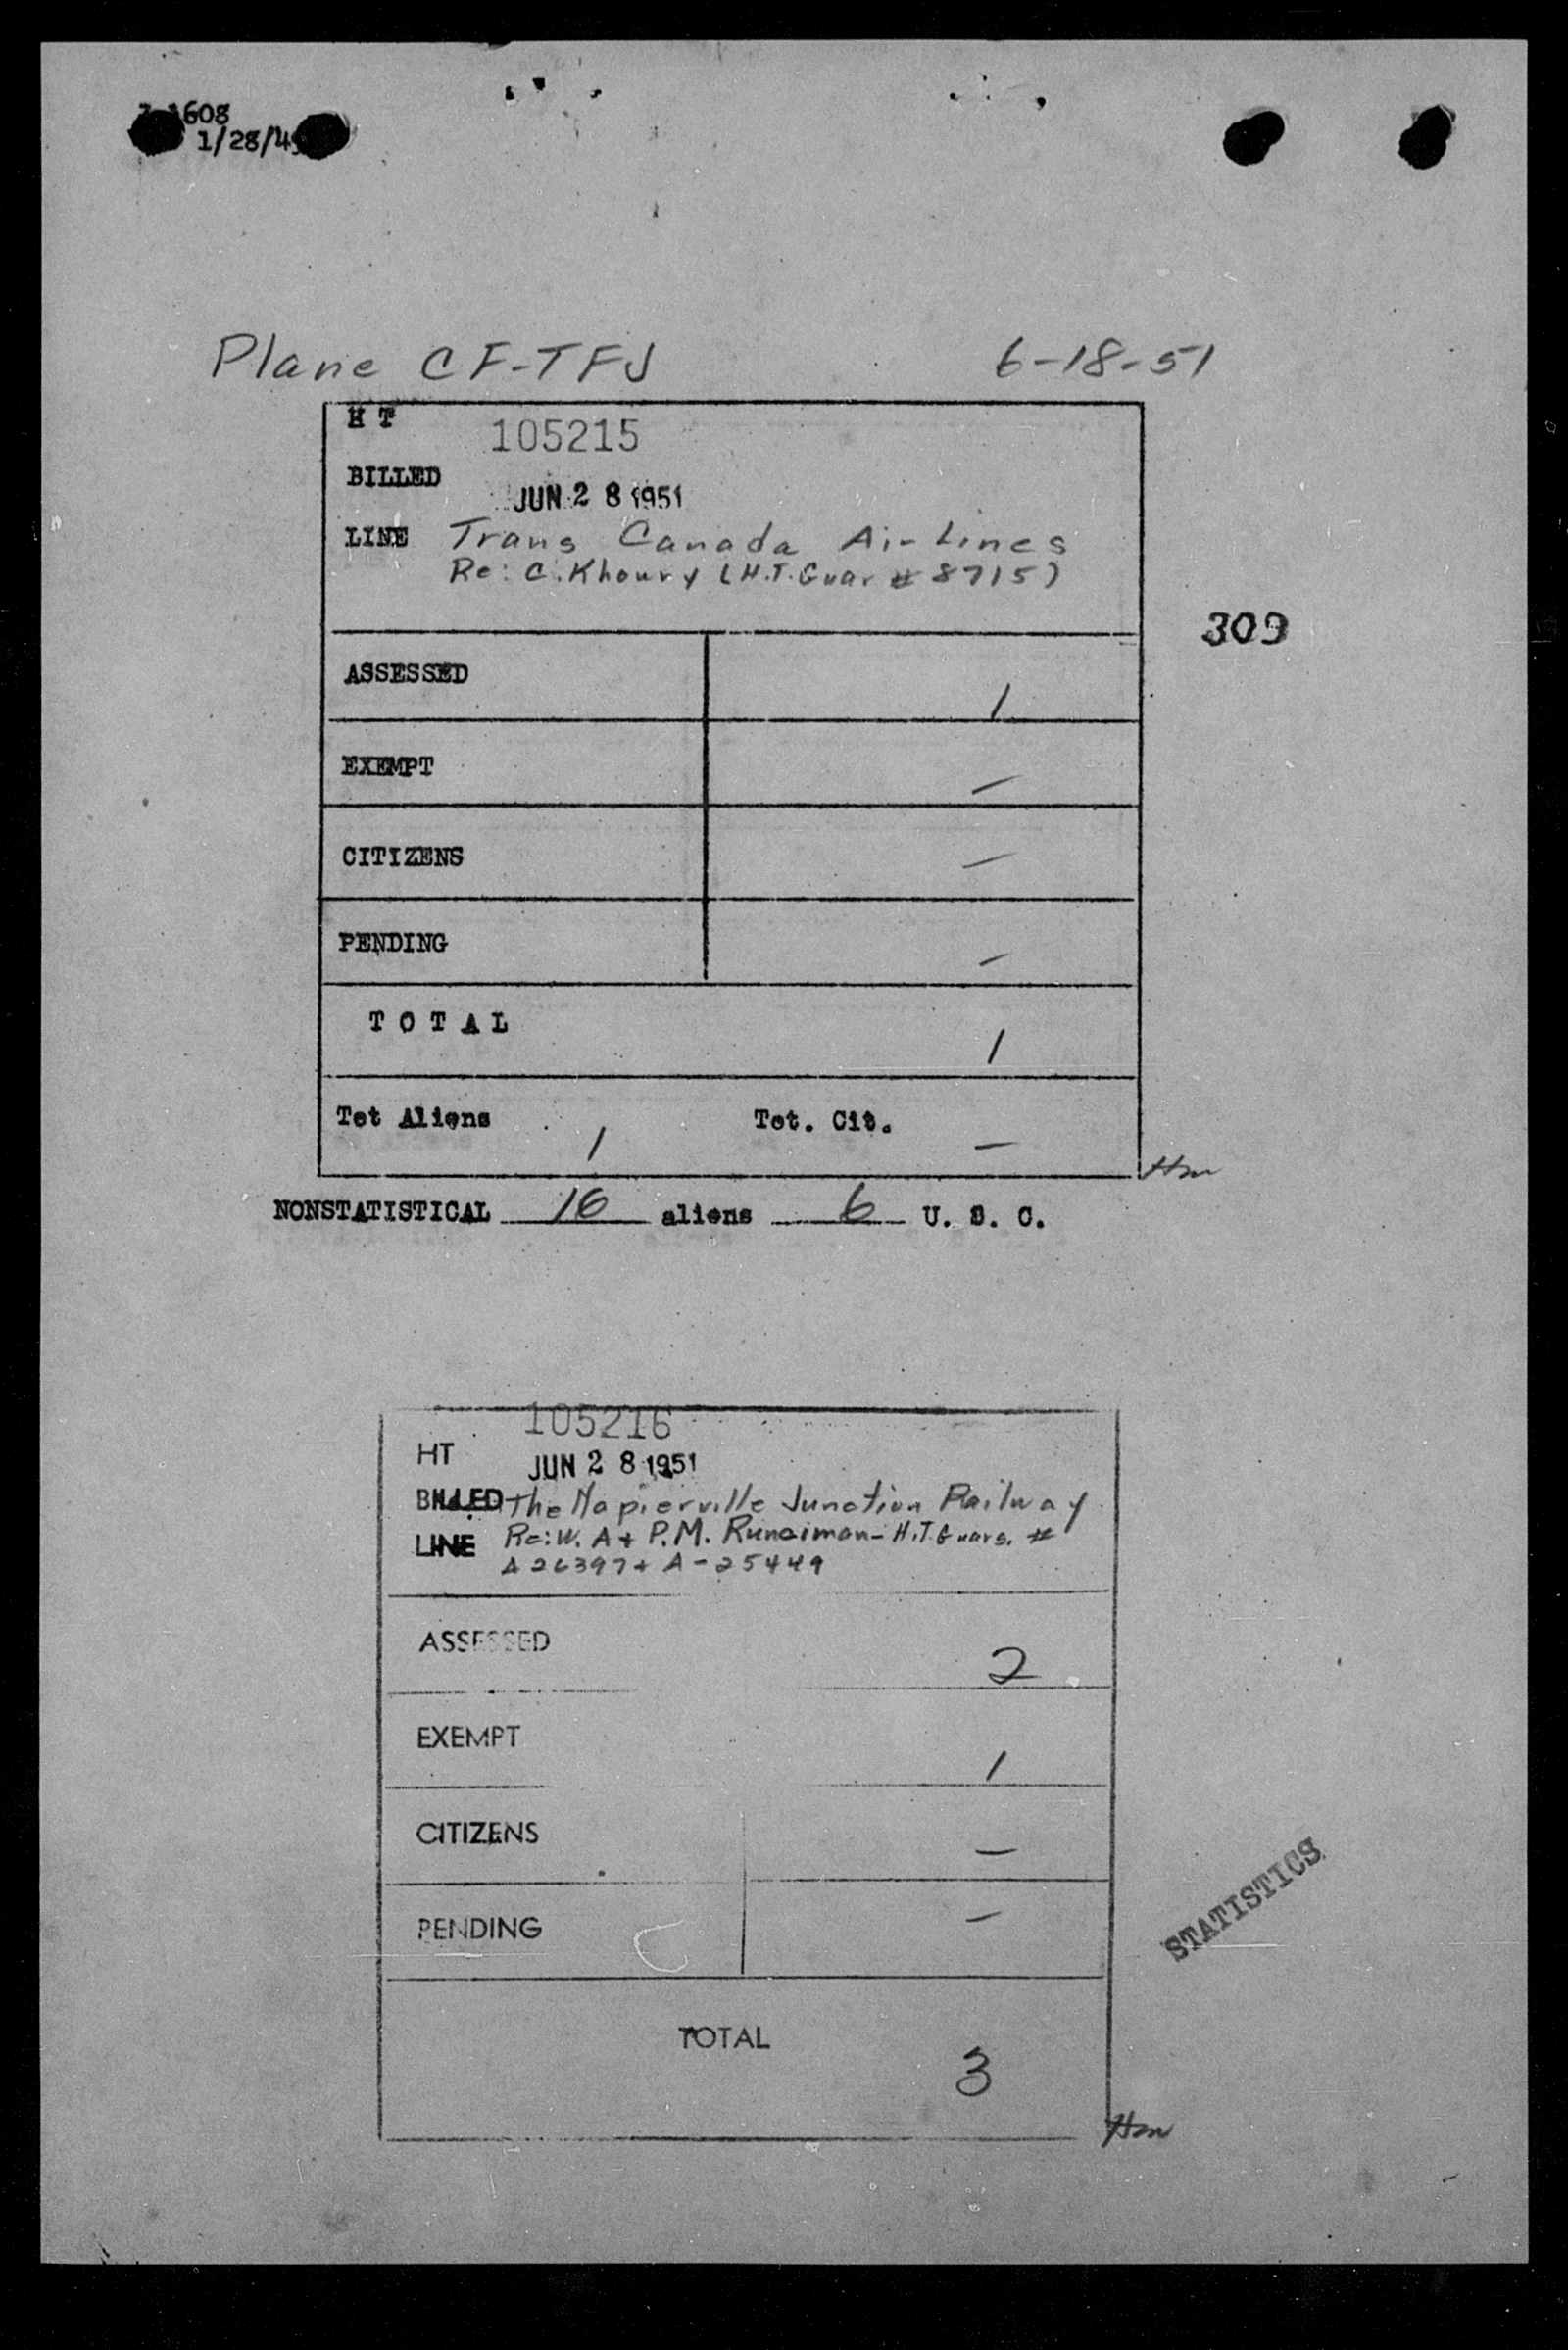 1608
1/28/4
Plane CF-TFJ 6-18-51
H T 105215
BILLED JUN 28 1951
LINE Trans Canada Air Lines
Re: C. Khoury (H.T. Guar # 8715)
309
ASSESSED 1
EXEMPT —
CITIZENS —
PENDING —
TOTAL 1
Tot Aliens 1 Tot. Cit. —
Hm
NONSTATISTICAL 16 aliens 6 U. S. C.
105216
HT JUN 28 1951
BILLED The Napierville Junction Railway
LINE Re: W. A + P.M. Runciman - H.T. Guars. #
A 26397 + A-25449
ASSESSED 2
EXEMPT 1
CITIZENS —
PENDING —
STATISTICS
TOTAL 3
Hm